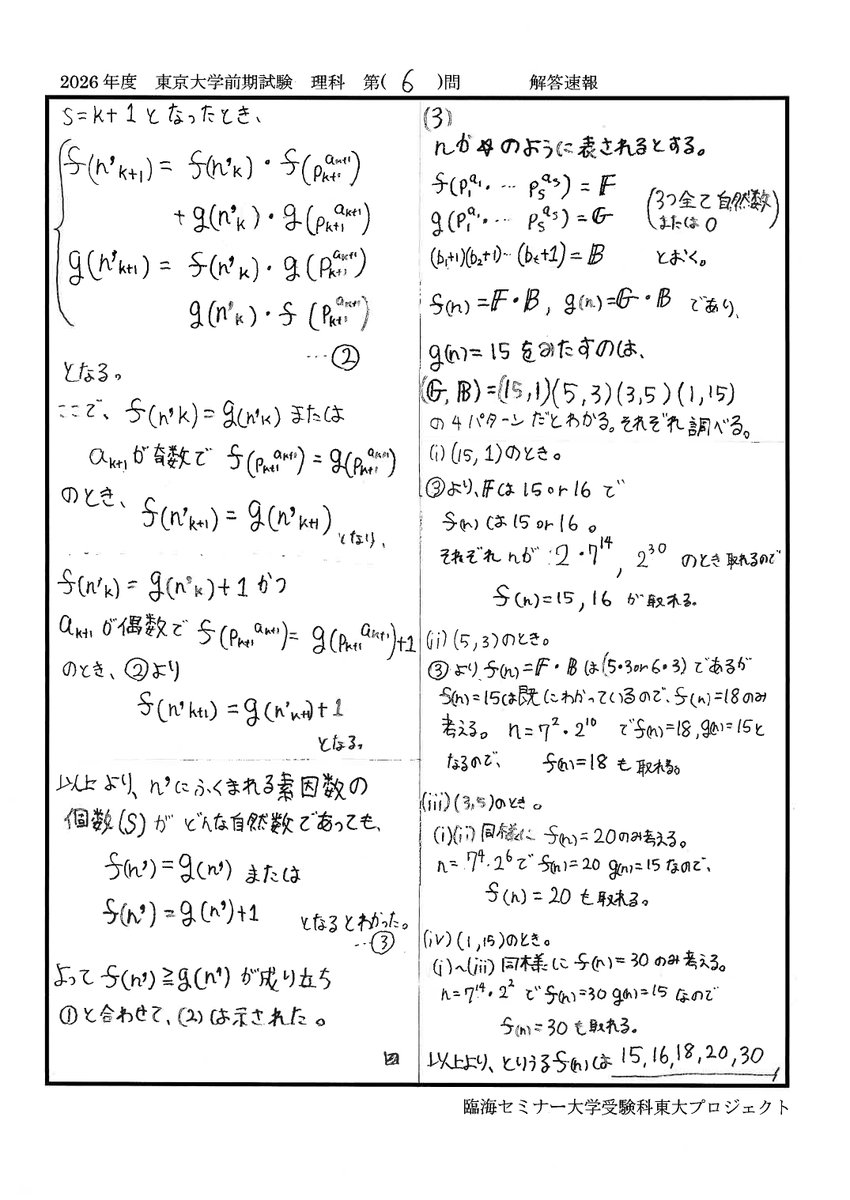 2026年度 東京大学前期試験 理科 第( 6 )問 解答速報
S=k+1となったとき、
f(n'k+1) = f(n'k)・f(pk+1^ak+1)
+g(n'k)・g(pk+1^ak+1)
g(n'k+1) = f(n'k)・g(pk+1^ak+1)
g(n'k)・f(pk+1^ak+1)
…②
となる。
ここで、f(n'k)=g(n'k)または
ak+1が奇数で f(pk+1^ak+1)=g(pk+1^ak+1)
のとき、f(n'k+1)=g(n'k+1)
となり、
f(n'k)=g(n'k)+1かつ
ak+1が偶数で f(pk+1^ak+1)= g(pk+1^ak+1)+1
のとき、②より
f(n'k+1)=g(n'k+1)+1
となる。
以上より、n'にふくまれる素因数の
個数(S)がどんな自然数であっても、
f(n')=g(n')または
f(n')=g(n')+1 となるとわかった。
…③
よってf(n')≧g(n')が成り立ち
①と合わせて、(2)は示された。
(3)
nが☆のように表されるとする。
f(p1^a1・…ps^as)=F
g(p1^a1・…ps^as)=G (3つ全て自然数または0)
(b1+1)(b2+1)…(bt+1)=B とおく。
f(n)=F・B, g(n)=G・B であり、
g(n)=15をみたすのは、
(G,B)=(15,1)(5,3)(3,5)(1,15)
の4パターンだとわかる。それぞれ調べる。
(i)(15,1)のとき。
③より、Fは15or16で
f(n)は15or16。
それぞれnが2・7^14, 2^30のとき取れるので
f(n)=15,16が取れる。
(ii)(5,3)のとき。
③よりf(n)=F・Bは(5・3or6・3)であるが
f(n)=15は既にわかっているので、f(n)=18のみ
考える。n=7^2・2^10でf(n)=18,g(n)=15と
なるので、f(n)=18も取れる。
(iii)(3,5)のとき。
(i)(ii)同様にf(n)=20のみ考える。
n=7^4・2^6でf(n)=20 g(n)=15なので、
f(n)=20も取れる。
(iv)(1,15)のとき。
(i)~(iii)同様にf(n)=30のみ考える。
n=7^14・2^2でf(n)=30 g(n)=15なので
f(n)=30も取れる。
以上より、とりうるf(n)は 15,16,18,20,30
臨海セミナー大学受験科東大プロジェクト